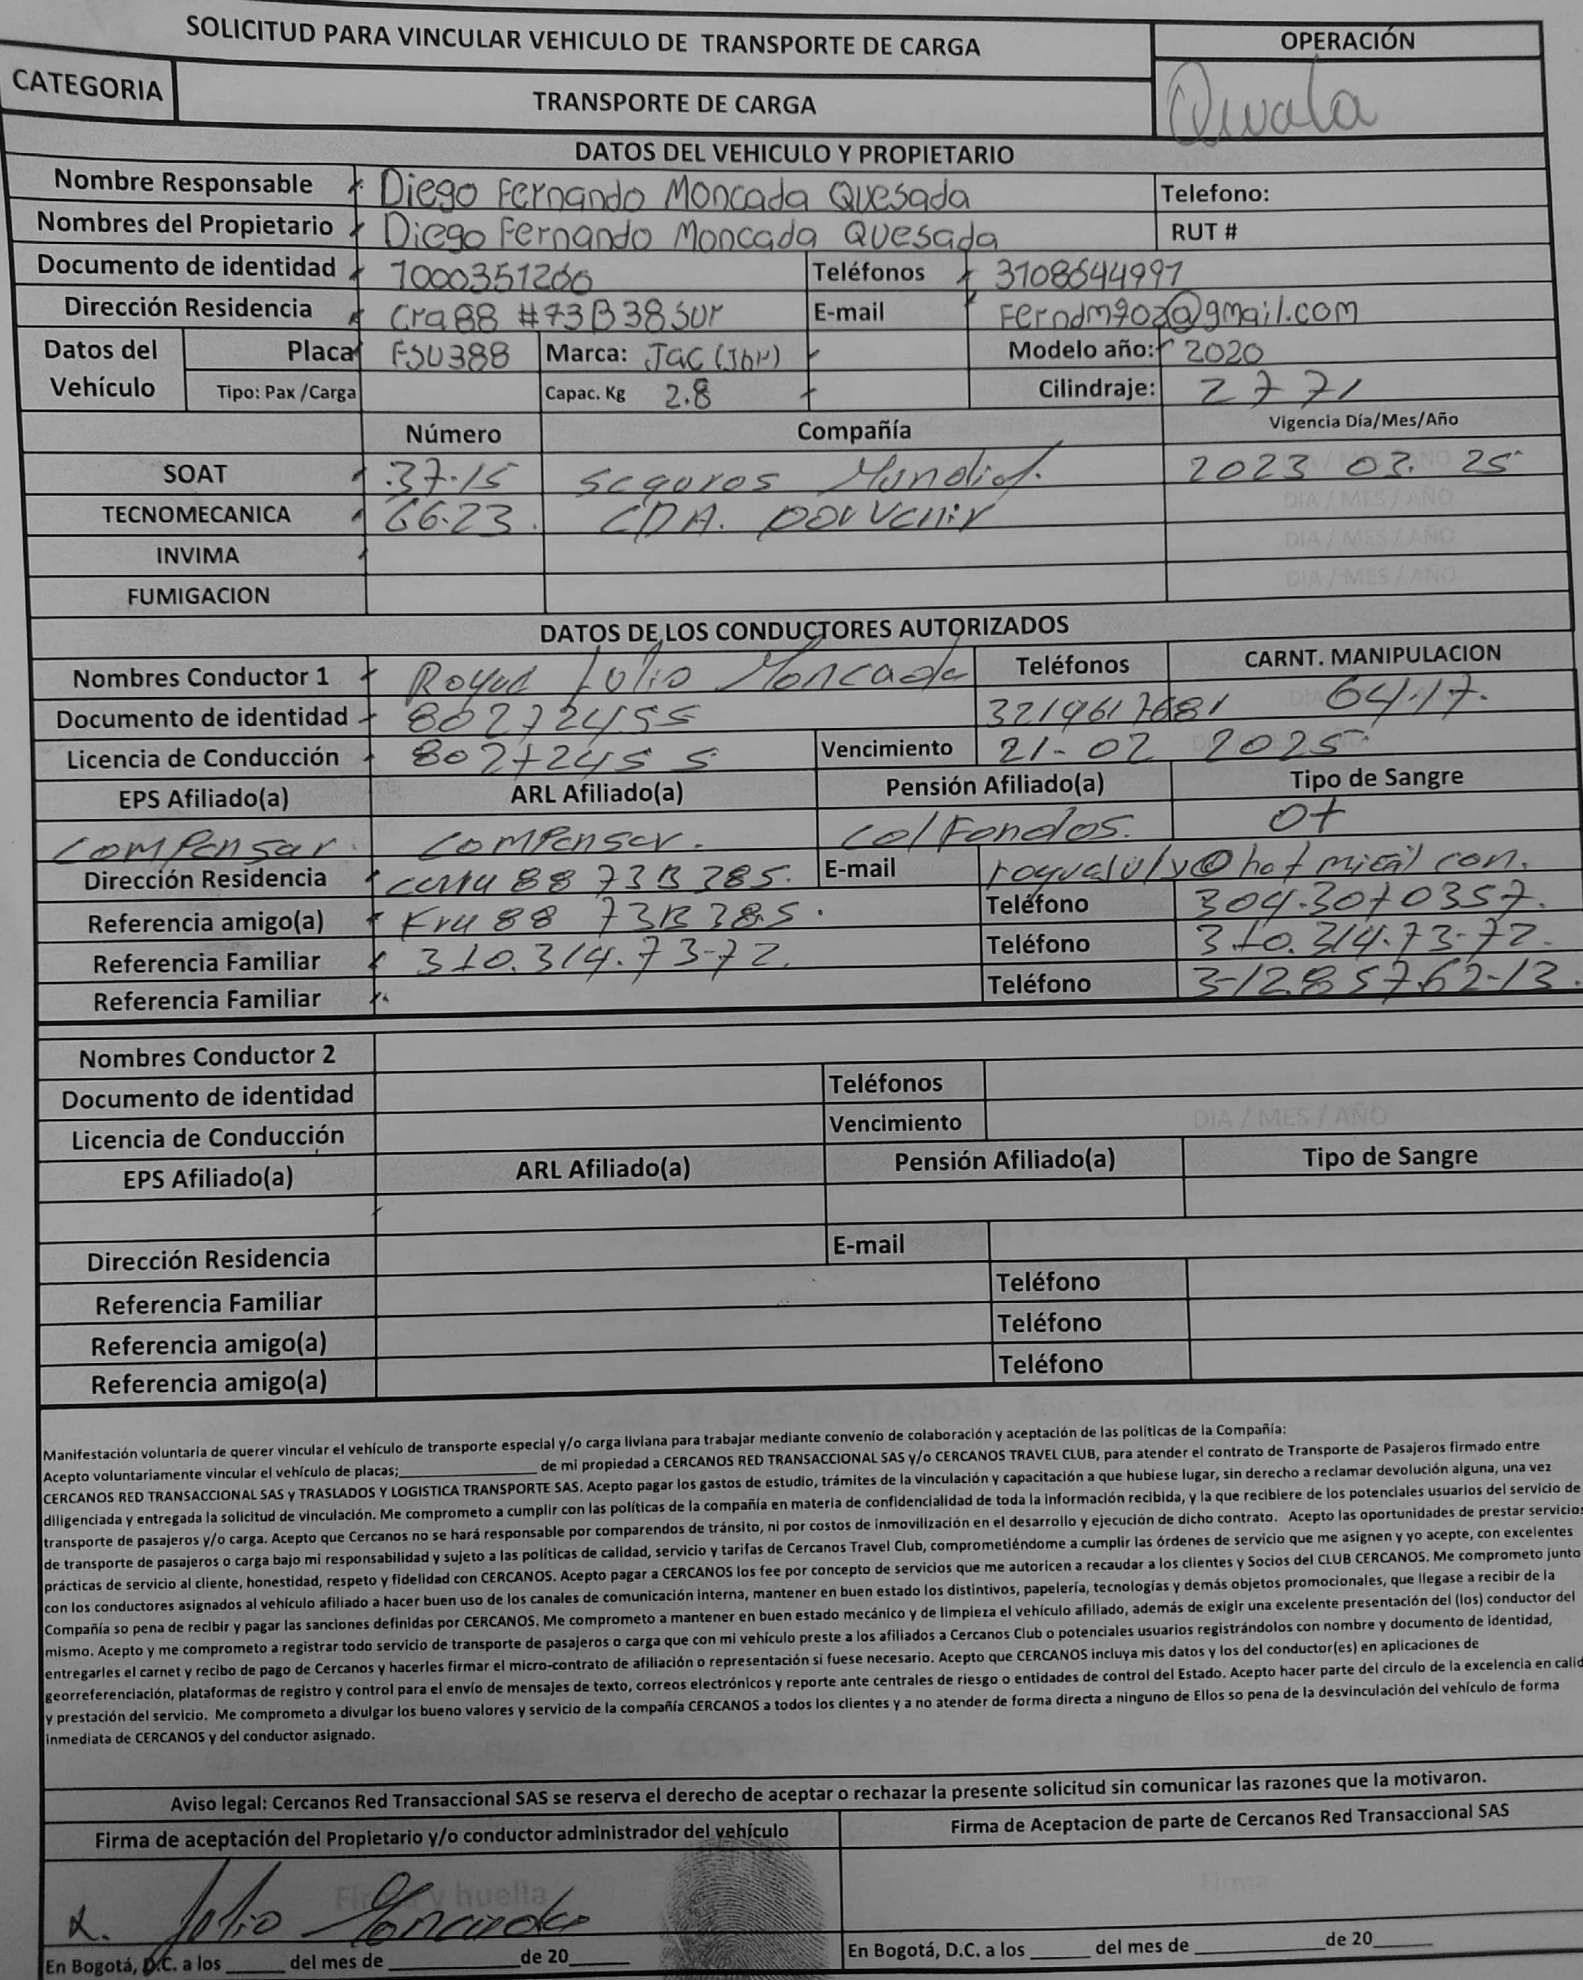 SOLICITUD PARA VINCULAR VEHICULO DE TRANSPORTE DE CARGA
OPERACIÓN
CATEGORIA
TRANSPORTE DE CARGA
DATOS DEL VEHICULO Y PROPIETARIO
Nombre Responsable Diego Fernando Moncada Quesada Telefono:
Nombres del Propietario Diego Fernando Moncada Quesada RUT #
Documento de identidad 1000351266 Teléfonos 3108644991
Dirección Residencia Cra 88 #73B38sur E-mail Ferndm902@gmail.com
Datos del Vehículo Placa FSU388 Marca: Jac (Jhr) Modelo año: 2020
Tipo: Pax /Carga Capac. Kg 2.8 Cilindraje: 2771
Número Compañía Vigencia Día/Mes/Año
SOAT 37-15 seguros Mundial. 2023 02. 25
TECNOMECANICA 66-23. CDA. porvenir DIA / MES / AÑO
INVIMA DIA / MES / AÑO
FUMIGACION DIA / MES / AÑO
DATOS DE LOS CONDUCTORES AUTORIZADOS
Nombres Conductor 1 Julio Moncada Teléfonos CARNT. MANIPULACION
Documento de identidad 80272455 3219617681 6417.
Licencia de Conducción 80272455 Vencimiento 21-02 2025
EPS Afiliado(a) ARL Afiliado(a) Pensión Afiliado(a) Tipo de Sangre
compensar. compensar. colfondos. O+
Dirección Residencia 88 73B 385. E-mail
Referencia amigo(a) Kra 88 73B385. Teléfono 304.3010357.
Referencia Familiar 310.314.73-72. Teléfono 310.314.73-72.
Referencia Familiar Teléfono 3-12.857.62-13.
Nombres Conductor 2
Documento de identidad Teléfonos
Licencia de Conducción Vencimiento DIA / MES / AÑO
EPS Afiliado(a) ARL Afiliado(a) Pensión Afiliado(a) Tipo de Sangre
Dirección Residencia E-mail
Referencia Familiar Teléfono
Referencia amigo(a) Teléfono
Referencia amigo(a) Teléfono
Manifestación voluntaria de querer vincular el vehículo de transporte especial y/o carga liviana para trabajar mediante convenio de colaboración y aceptación de las políticas de la Compañía:
Acepto voluntariamente vincular el vehículo de placas;______________ de mi propiedad a CERCANOS RED TRANSACCIONAL SAS y/o CERCANOS TRAVEL CLUB, para atender el contrato de Transporte de Pasajeros firmado entre
CERCANOS RED TRANSACCIONAL SAS y TRASLADOS Y LOGISTICA TRANSPORTE SAS. Acepto pagar los gastos de estudio, trámites de la vinculación y capacitación a que hubiese lugar, sin derecho a reclamar devolución alguna, una vez
diligenciada y entregada la solicitud de vinculación. Me comprometo a cumplir con las políticas de la compañía en materia de confidencialidad de toda la información recibida, y la que recibiere de los potenciales usuarios del servicio de
transporte de pasajeros y/o carga. Acepto que Cercanos no se hará responsable por comparendos de tránsito, ni por costos de inmovilización en el desarrollo y ejecución de dicho contrato. Acepto las oportunidades de prestar servicios
de transporte de pasajeros o carga bajo mi responsabilidad y sujeto a las políticas de calidad, servicio y tarifas de Cercanos Travel Club, comprometiéndome a cumplir las órdenes de servicio que me asignen y yo acepte, con excelentes
prácticas de servicio al cliente, honestidad, respeto y fidelidad con CERCANOS. Acepto pagar a CERCANOS los fee por concepto de servicios que me autoricen a recaudar a los clientes y Socios del CLUB CERCANOS. Me comprometo junto
con los conductores asignados al vehículo afiliado a hacer buen uso de los canales de comunicación interna, mantener en buen estado los distintivos, papelería, tecnologías y demás objetos promocionales, que llegase a recibir de la
Compañía so pena de recibir y pagar las sanciones definidas por CERCANOS. Me comprometo a mantener en buen estado mecánico y de limpieza el vehículo afiliado, además de exigir una excelente presentación del (los) conductor del
mismo. Acepto y me comprometo a registrar todo servicio de transporte de pasajeros o carga que con mi vehículo preste a los afiliados a Cercanos Club o potenciales usuarios registrándolos con nombre y documento de identidad,
entregarles el carnet y recibo de pago de Cercanos y hacerles firmar el micro-contrato de afiliación o representación si fuese necesario. Acepto que CERCANOS incluya mis datos y los del conductor(es) en aplicaciones de
georreferenciación, plataformas de registro y control para el envío de mensajes de texto, correos electrónicos y reporte ante centrales de riesgo o entidades de control del Estado. Acepto hacer parte del circulo de la excelencia en calid
y prestación del servicio. Me comprometo a divulgar los bueno valores y servicio de la compañía CERCANOS a todos los clientes y a no atender de forma directa a ninguno de Ellos so pena de la desvinculación del vehículo de forma
inmediata de CERCANOS y del conductor asignado.
Aviso legal: Cercanos Red Transaccional SAS se reserva el derecho de aceptar o rechazar la presente solicitud sin comunicar las razones que la motivaron.
Firma de aceptación del Propietario y/o conductor administrador del vehículo Firma de Aceptacion de parte de Cercanos Red Transaccional SAS
Firma y huella Firma
Julio Moncada
En Bogotá, D.C. a los ______ del mes de __________ de 20______ En Bogotá, D.C. a los ______ del mes de __________ de 20______